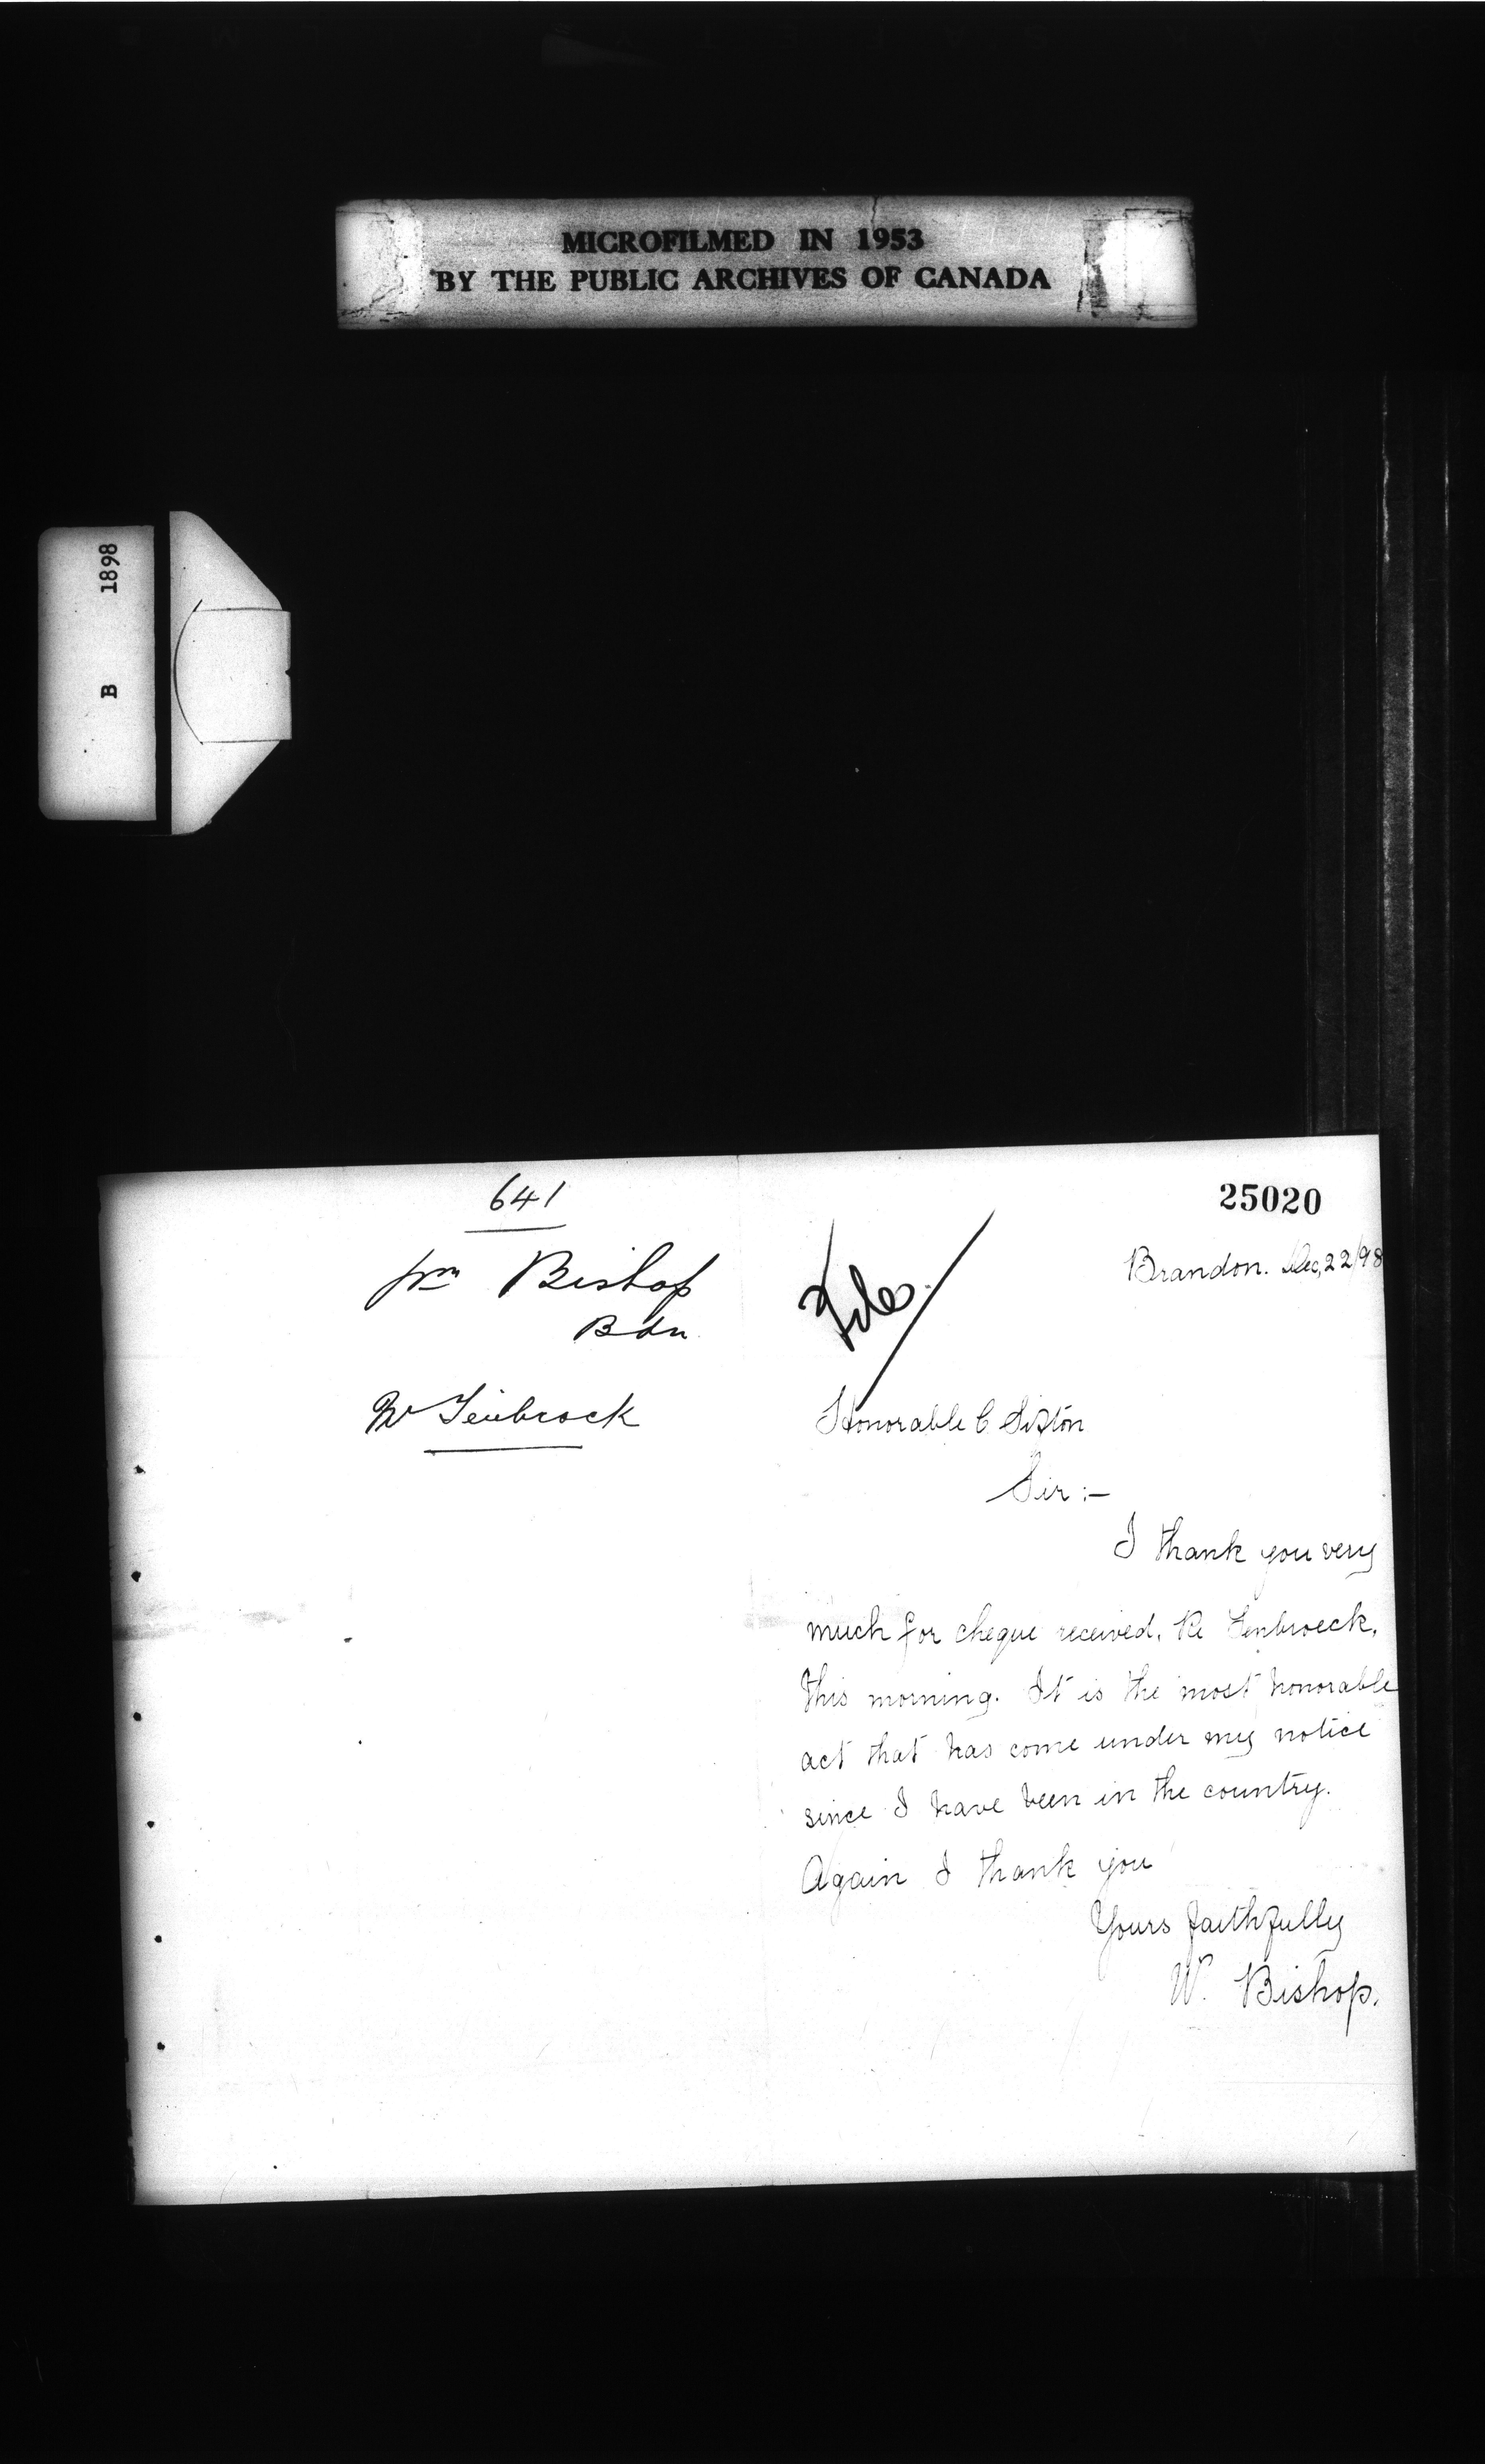 MICROFILMED IN 1953
BY THE PUBLIC ARCHIVES OF CANADA
B 1898
641
Wm Bishop
Bdn
Tenbrock
25020
File
Brandon. Dec, 22/98
Honorable C. Sifton
Sir :-
I thank you very
much for cheque received, Re Tenbroeck,
this morning. It is the most honorable
act that has come under my notice
since I have been in the country.
Again I thank you
Yours faithfully
W. Bishop.